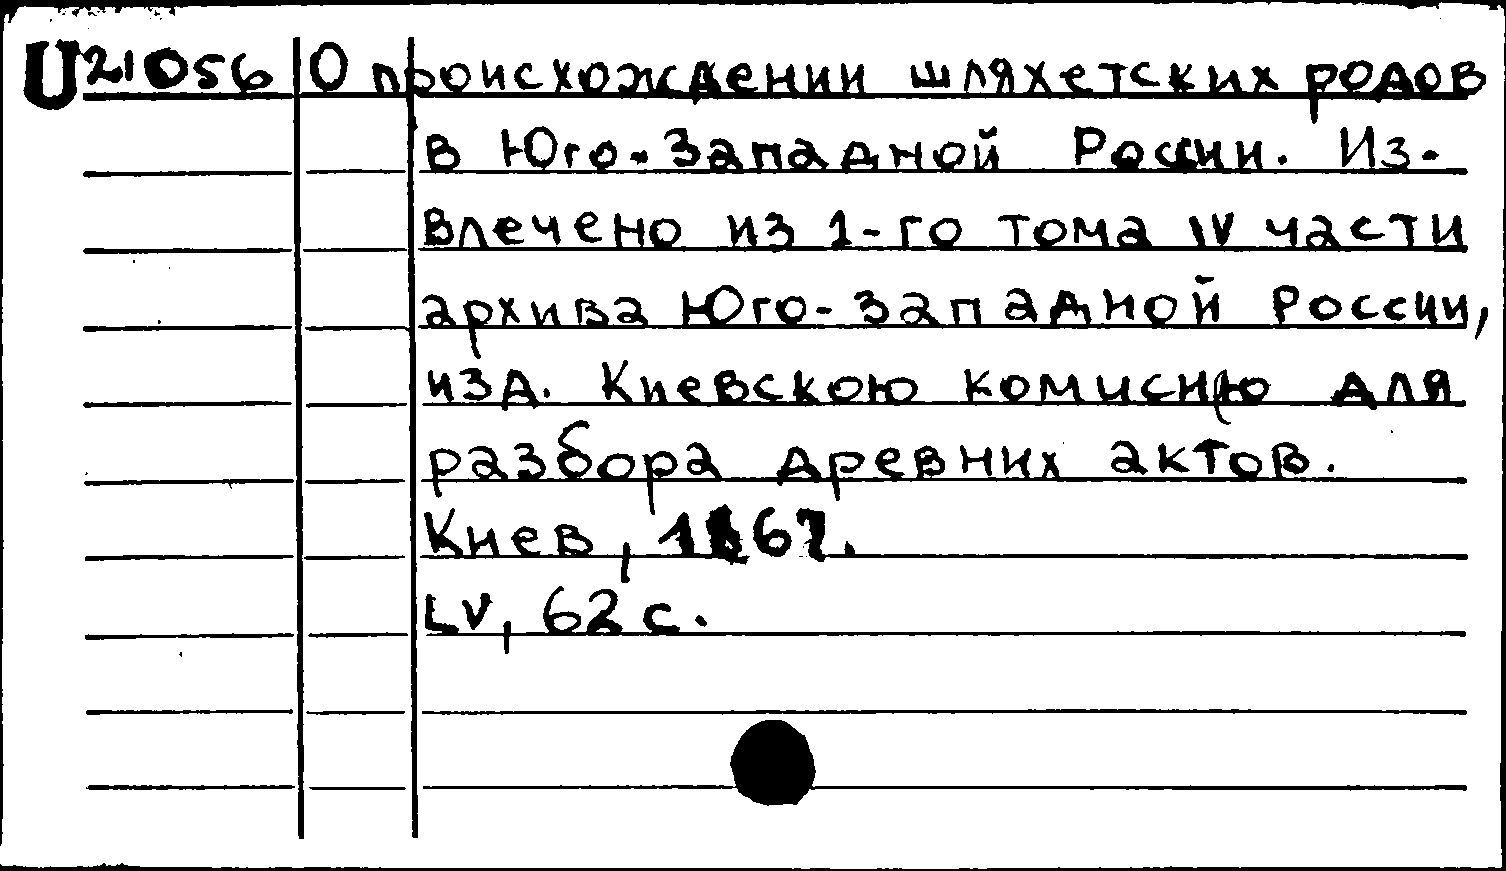 U21056 О происхождении шляхетских родов
в Юго-Западной России. Из-
влечено из 1-го тома IV части
архива Юго-Западной России,
изд. Киевскою комисиею для
разбора древних актов.
Киев, 1867.
LV, 62 с.